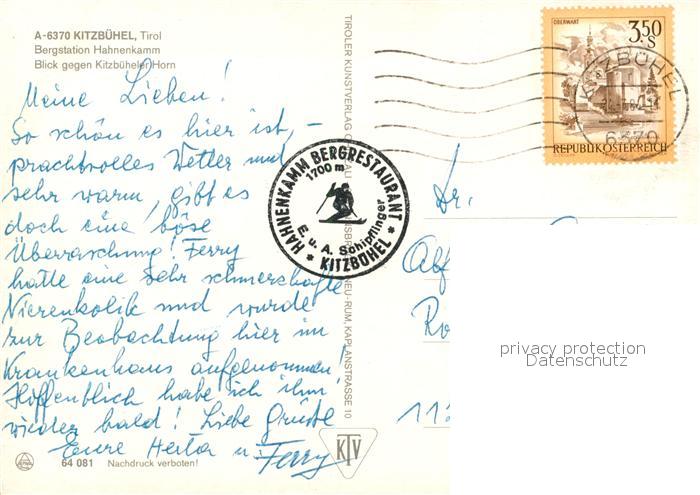 A-6370 KITZBÜHEL, Tirol
Bergstation Hahnenkamm
Blick gegen Kitzbüheler Horn
Meine Lieben!
So schön es hier ist, –
prachtvolles Wetter und
sehr warm, gibt es
doch eine böse
Überraschung! Ferry
hatte eine sehr schmerzhafte
Nierenkolik und wurde
zur Beobachtung hier im
Krankenhaus aufgenommen!
Hoffentlich habe ich ihn
wieder bald! Liebe Grüße
Eure Herta u. Ferry
64 081 Nachdruck verboten!
HAHNENKAMM BERGRESTAURANT
1700 m
E. u. A. Schipflinger
* KITZBÜHEL *
TIROLER KUNSTVERLAG
NEU-RUM, KAPLANSTRASSE 10
KTV
OBERWART
3.50
S
REPUBLIK ÖSTERREICH
KITZBÜHEL
6370
privacy protection
Datenschutz